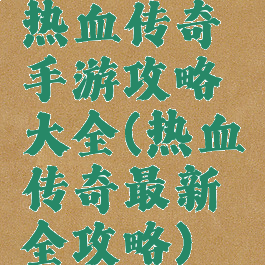 热血传奇
手游攻略
大全(热血
传奇最新
全攻略)